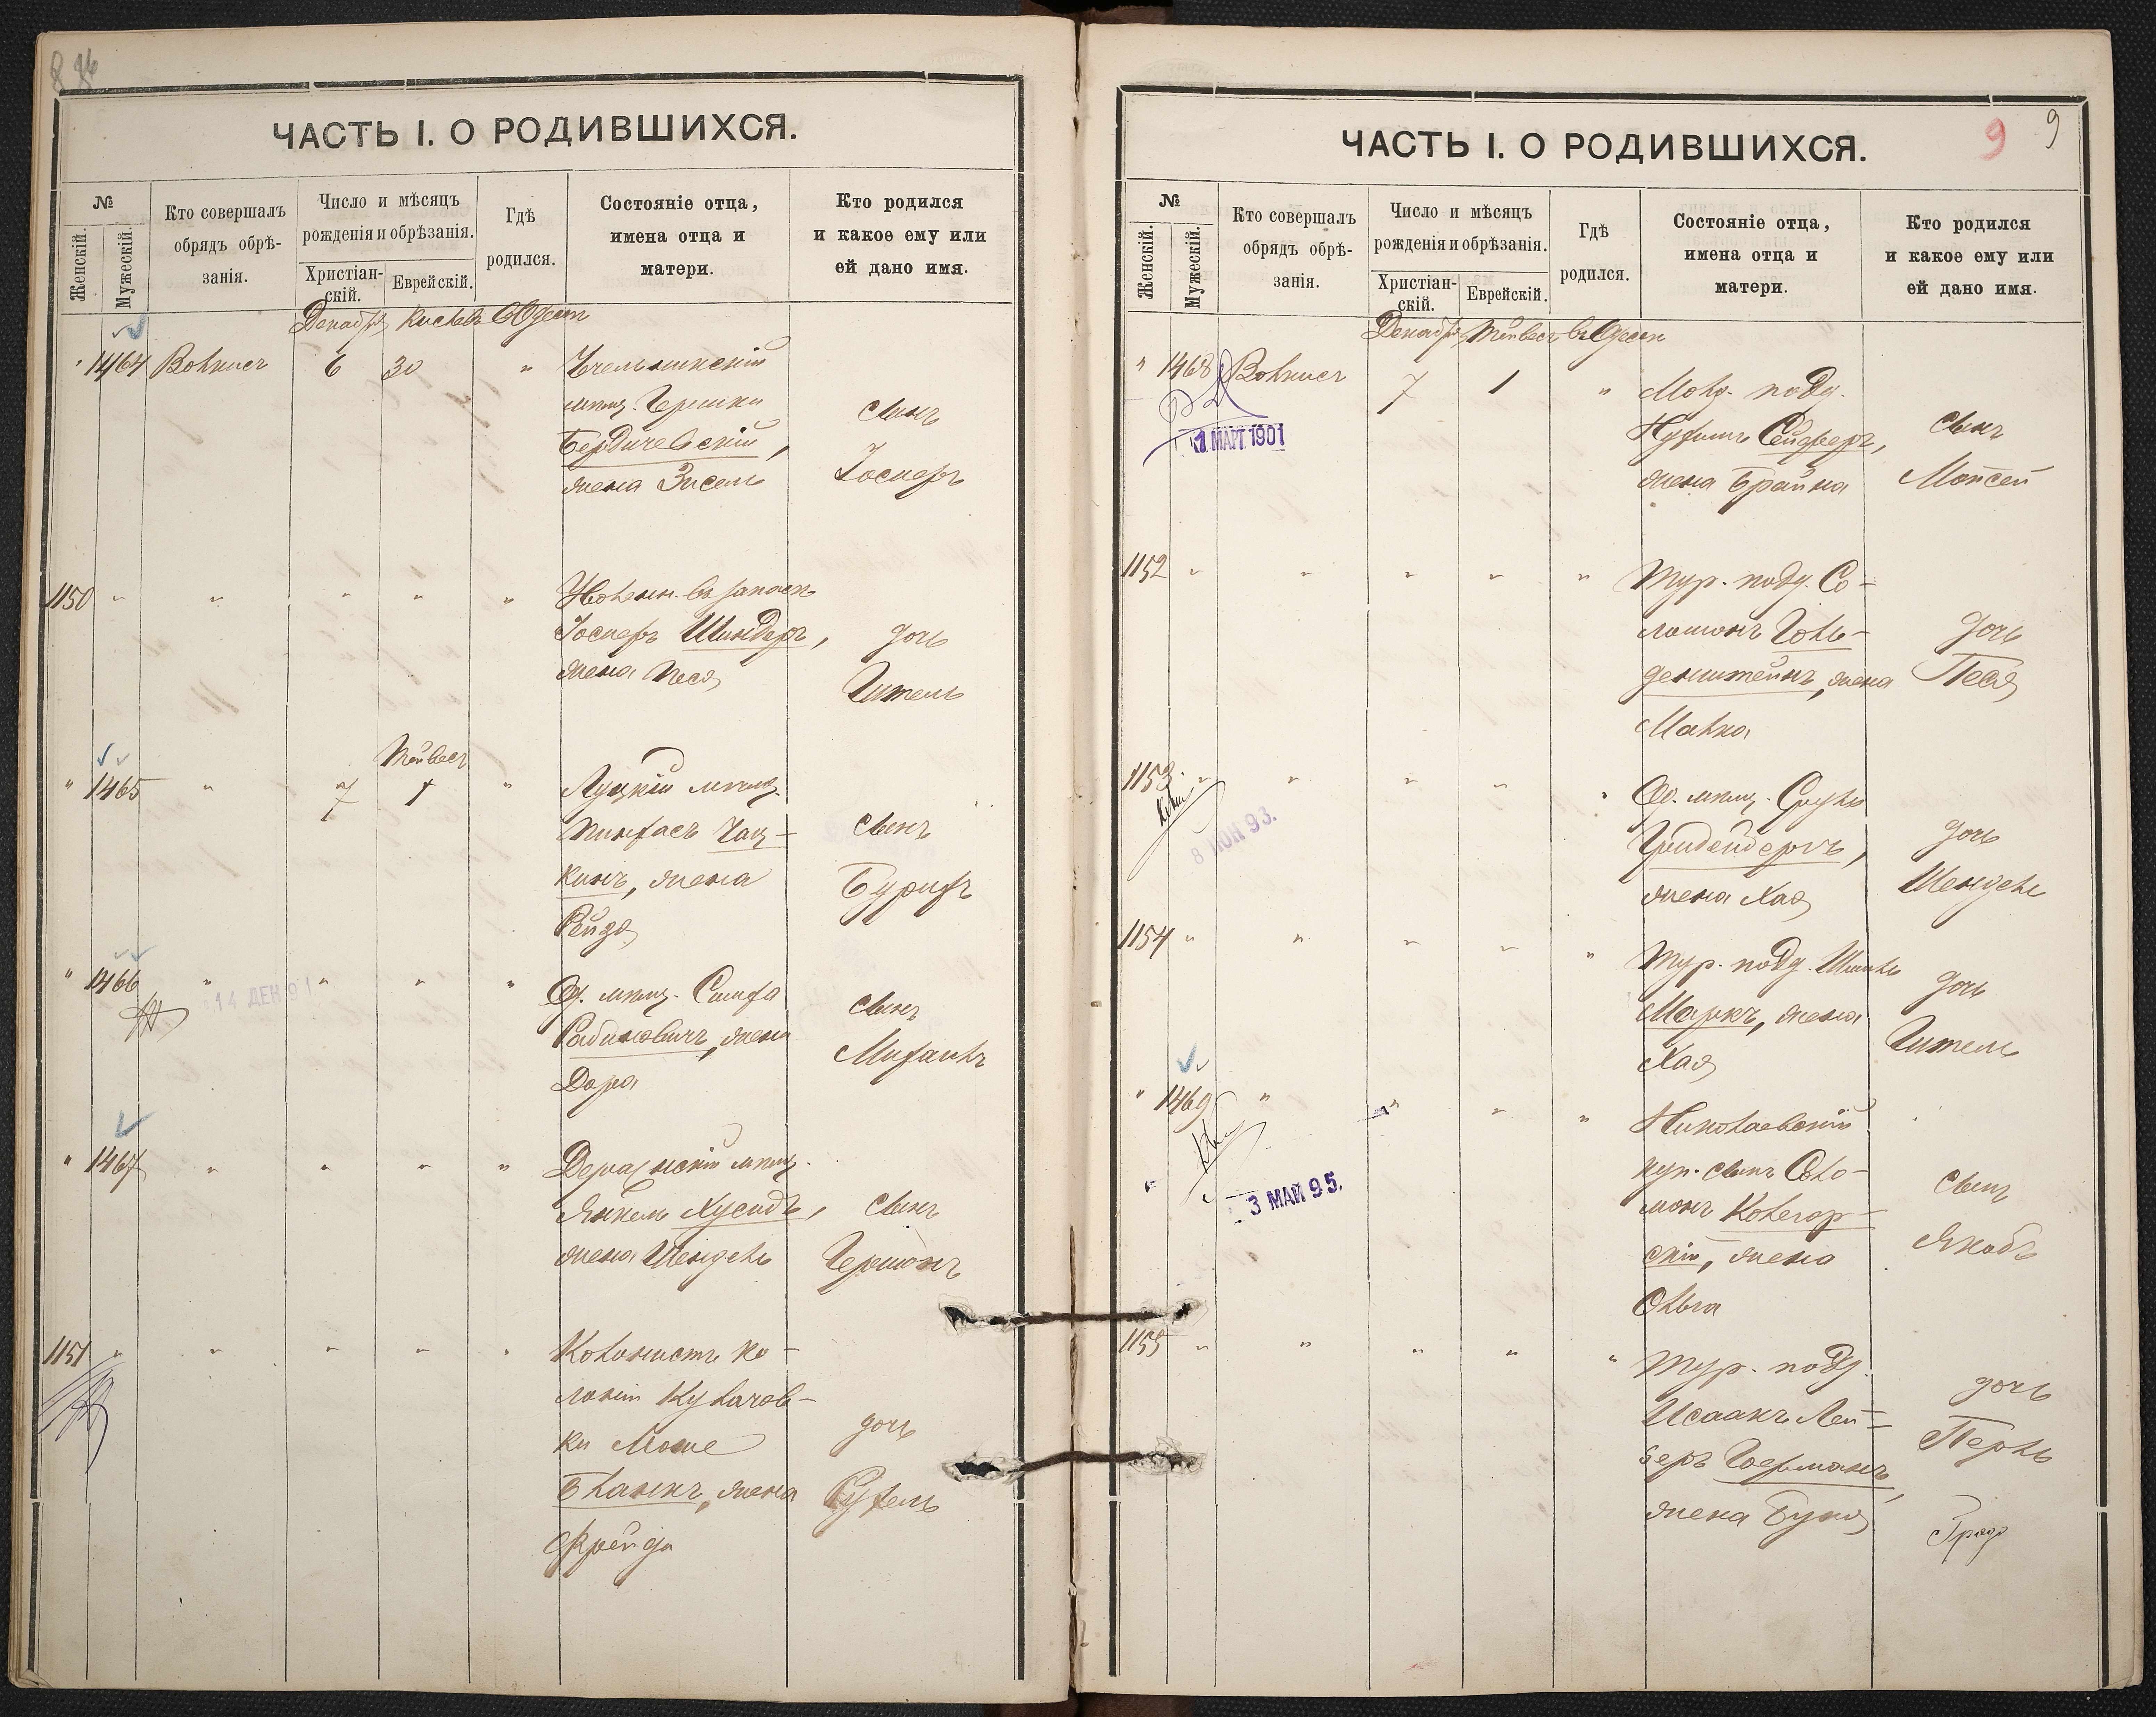 ЧАСТЬ I. О РОДИВШИХСЯ.
№
Женскій.
Мужескій.
Кто совершалъ
обрядъ обрѣ-
занія.
Число и мѣсяцъ
рожденія и обрѣзанія.
Христіан-
скій.
Еврейскій.
Гдѣ
родился.
Состояніе отца,
имена отца и
матери.
Кто родился
и какое ему или
ей дано имя.
Декабрь Кислевъ Одесса
" 1464 6 30 "
мѣщ. Гершка
Бердичевскій,
жена Зисель
сынъ
Іосифъ
1150 " " " " "
Іосифъ Шиндеръ,
жена Песя
дочь
Гитель
Тейвесъ
" 1465 " 7 1 " Луцкій мѣщ.
Пинхасъ Чац-
кинъ, жена
Рейзя
сынъ
" 1466 " " " " Од. мѣщ. Симха
14 ДЕК 91
Рабиновичъ, жена
Дора
сынъ
Михаилъ
" 1467 " " " " мѣщ.
Янкель Хусидъ,
жена Шейндель
сынъ
Гершонъ
1151 " " " " " Колонистъ ко-
лоніи Кулачев-
ки Моше
Бланкъ, жена
Фрейда
дочь
Рухель
ЧАСТЬ I. О РОДИВШИХСЯ.
9
9
№
Женскій.
Мужескій.
Кто совершалъ
обрядъ обрѣ-
занія.
Число и мѣсяцъ
рожденія и обрѣзанія.
Христіан-
скій.
Еврейскій.
Гдѣ
родился.
Состояніе отца,
имена отца и
матери.
Кто родился
и какое ему или
ей дано имя.
Декабрь Тейвесъ въ Одессѣ
" 1468 7 1 " Молд. подд.
1 МАРТ 1901
Нухимъ Сейферъ,
жена Брайна
сынъ
Мойсей
1152 " " " " " Тур. подд. Со-
ломонъ Голь-
денштейнъ, жена
Малка
дочь
Песя
1153 " " " " " Од. мѣщ. Сруль
8 ІЮН 93.
жена Хая
дочь
Шендель
1154 " " " " " Тур. подд.
Маркъ, жена
Хая
дочь
Гитель
" 1469 " " " " Николаевскій
куп. сынъ Соло-
монъ Кологор-
скій, жена
Ольга
3 МАЙ 95.
сынъ
Якобъ
1155 " " " " " Тур. подд.
Исаакъ Лей-
беръ Гофманъ,
жена Буня
дочь
Перль